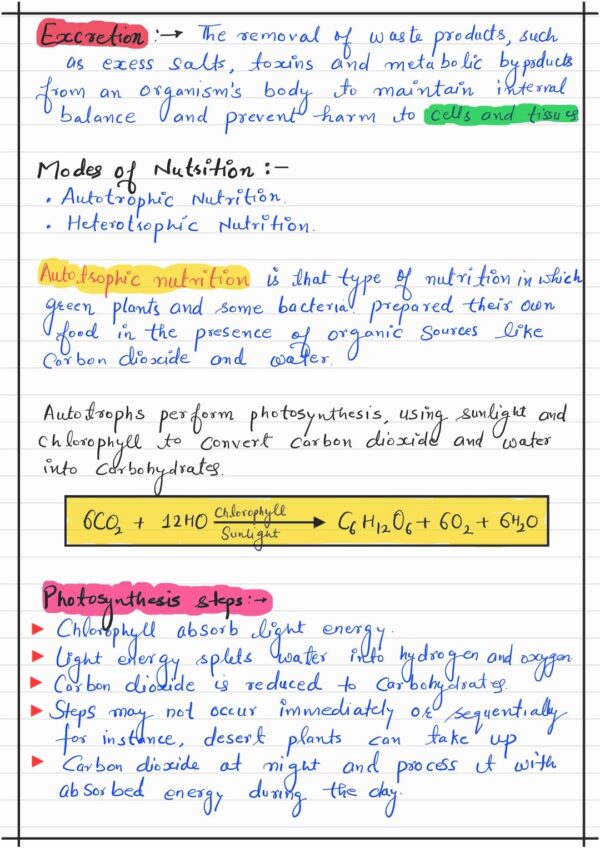 Excretion :→ The removal of waste products, such
as excess salts, toxins and metabolic byproducts
from an organism's body to maintain internal
balance and prevent harm to cells and tissues
Modes of Nutrition :-
• Autotrophic Nutrition.
• Heterotrophic Nutrition.
Autotrophic nutrition is that type of nutrition in which
green plants and some bacteria prepared their own
food in the presence of organic sources like
Carbon dioxide and water.
Autotrophs perform photosynthesis, using sunlight and
chlorophyll to convert carbon dioxide and water
into carbohydrates.
6CO2 + 12HO Chlorophyll Sunlight → C6H12O6 + 6O2 + 6H2O
Photosynthesis steps :→
▶ Chlorophyll absorb light energy.
▶ Light energy splits water into hydrogen and oxygen
▶ Carbon dioxide is reduced to carbohydrates.
▶ Steps may not occur immediately or sequentially
for instance, desert plants can take up
▶ Carbon dioxide at night and process it with
absorbed energy during the day.